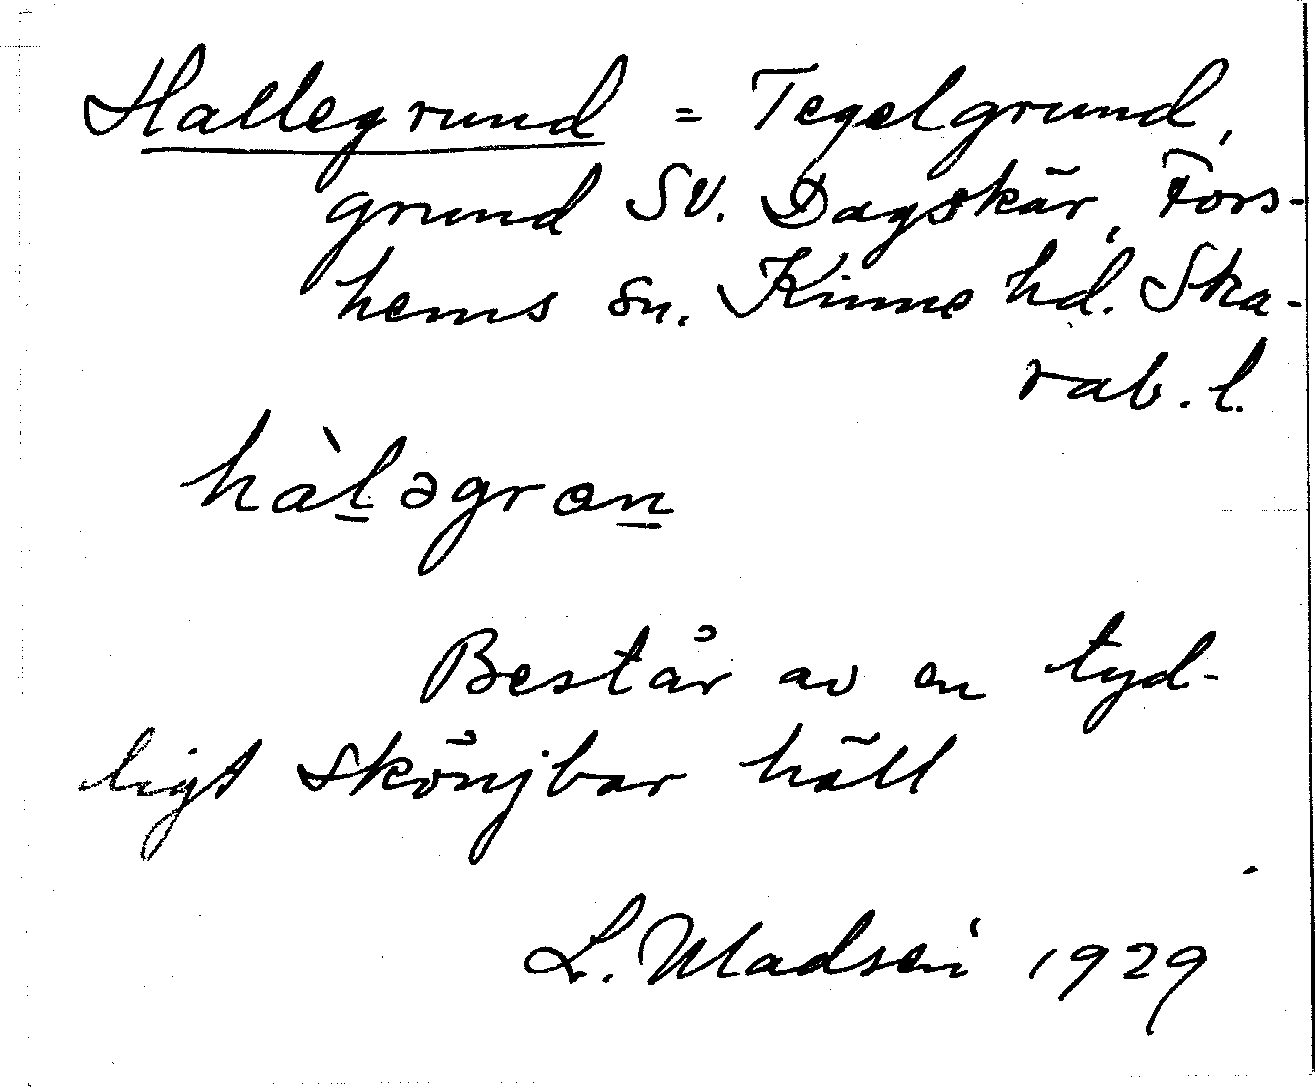 Hallegrund = Tegelgrund,
grund SV. Dagskär, Fors-
hems sn. Kinne hd. Ska-
rab. l.
hàl̲əgron̲
Består av en tyd-
ligt skönjbar häll
L. Madsén 1929